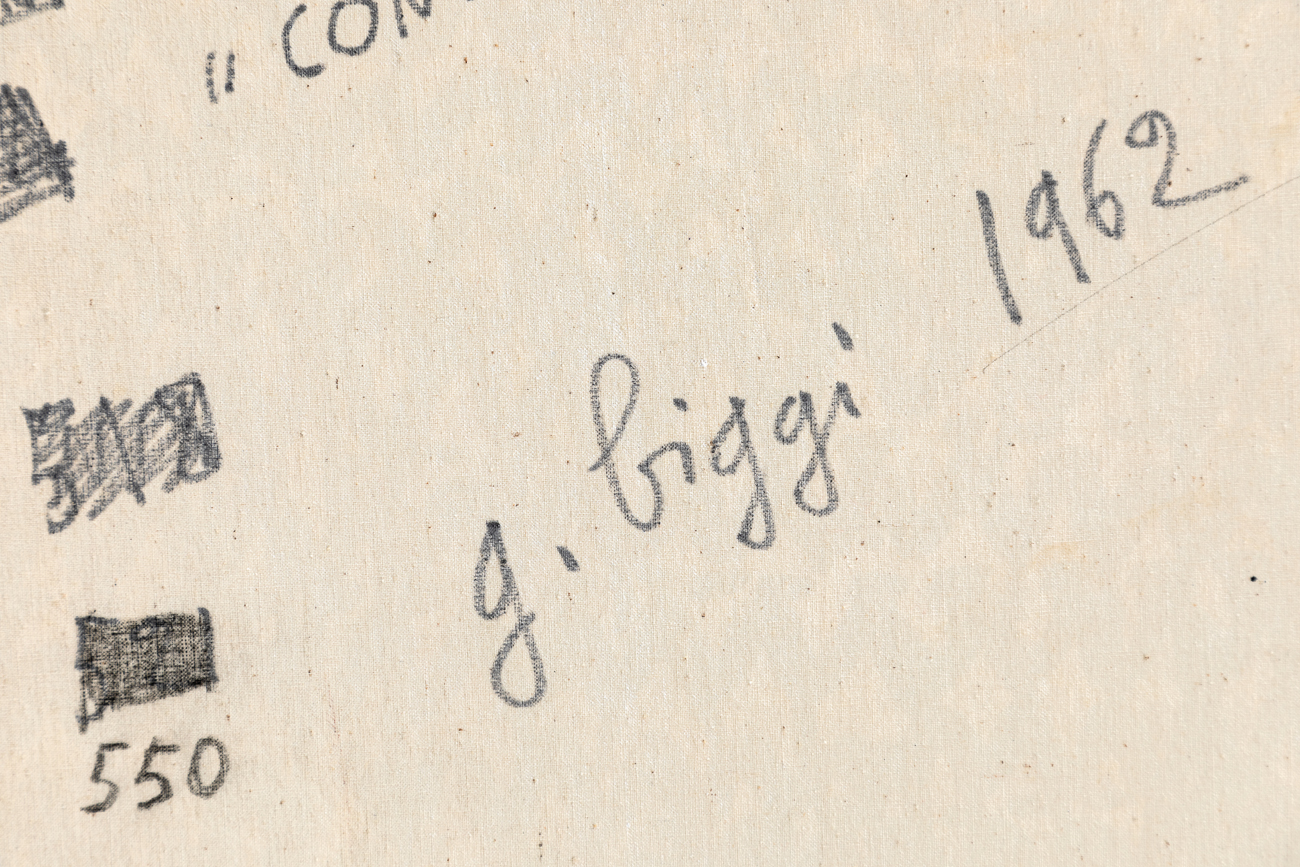 " CON
1962
g. biggi
550